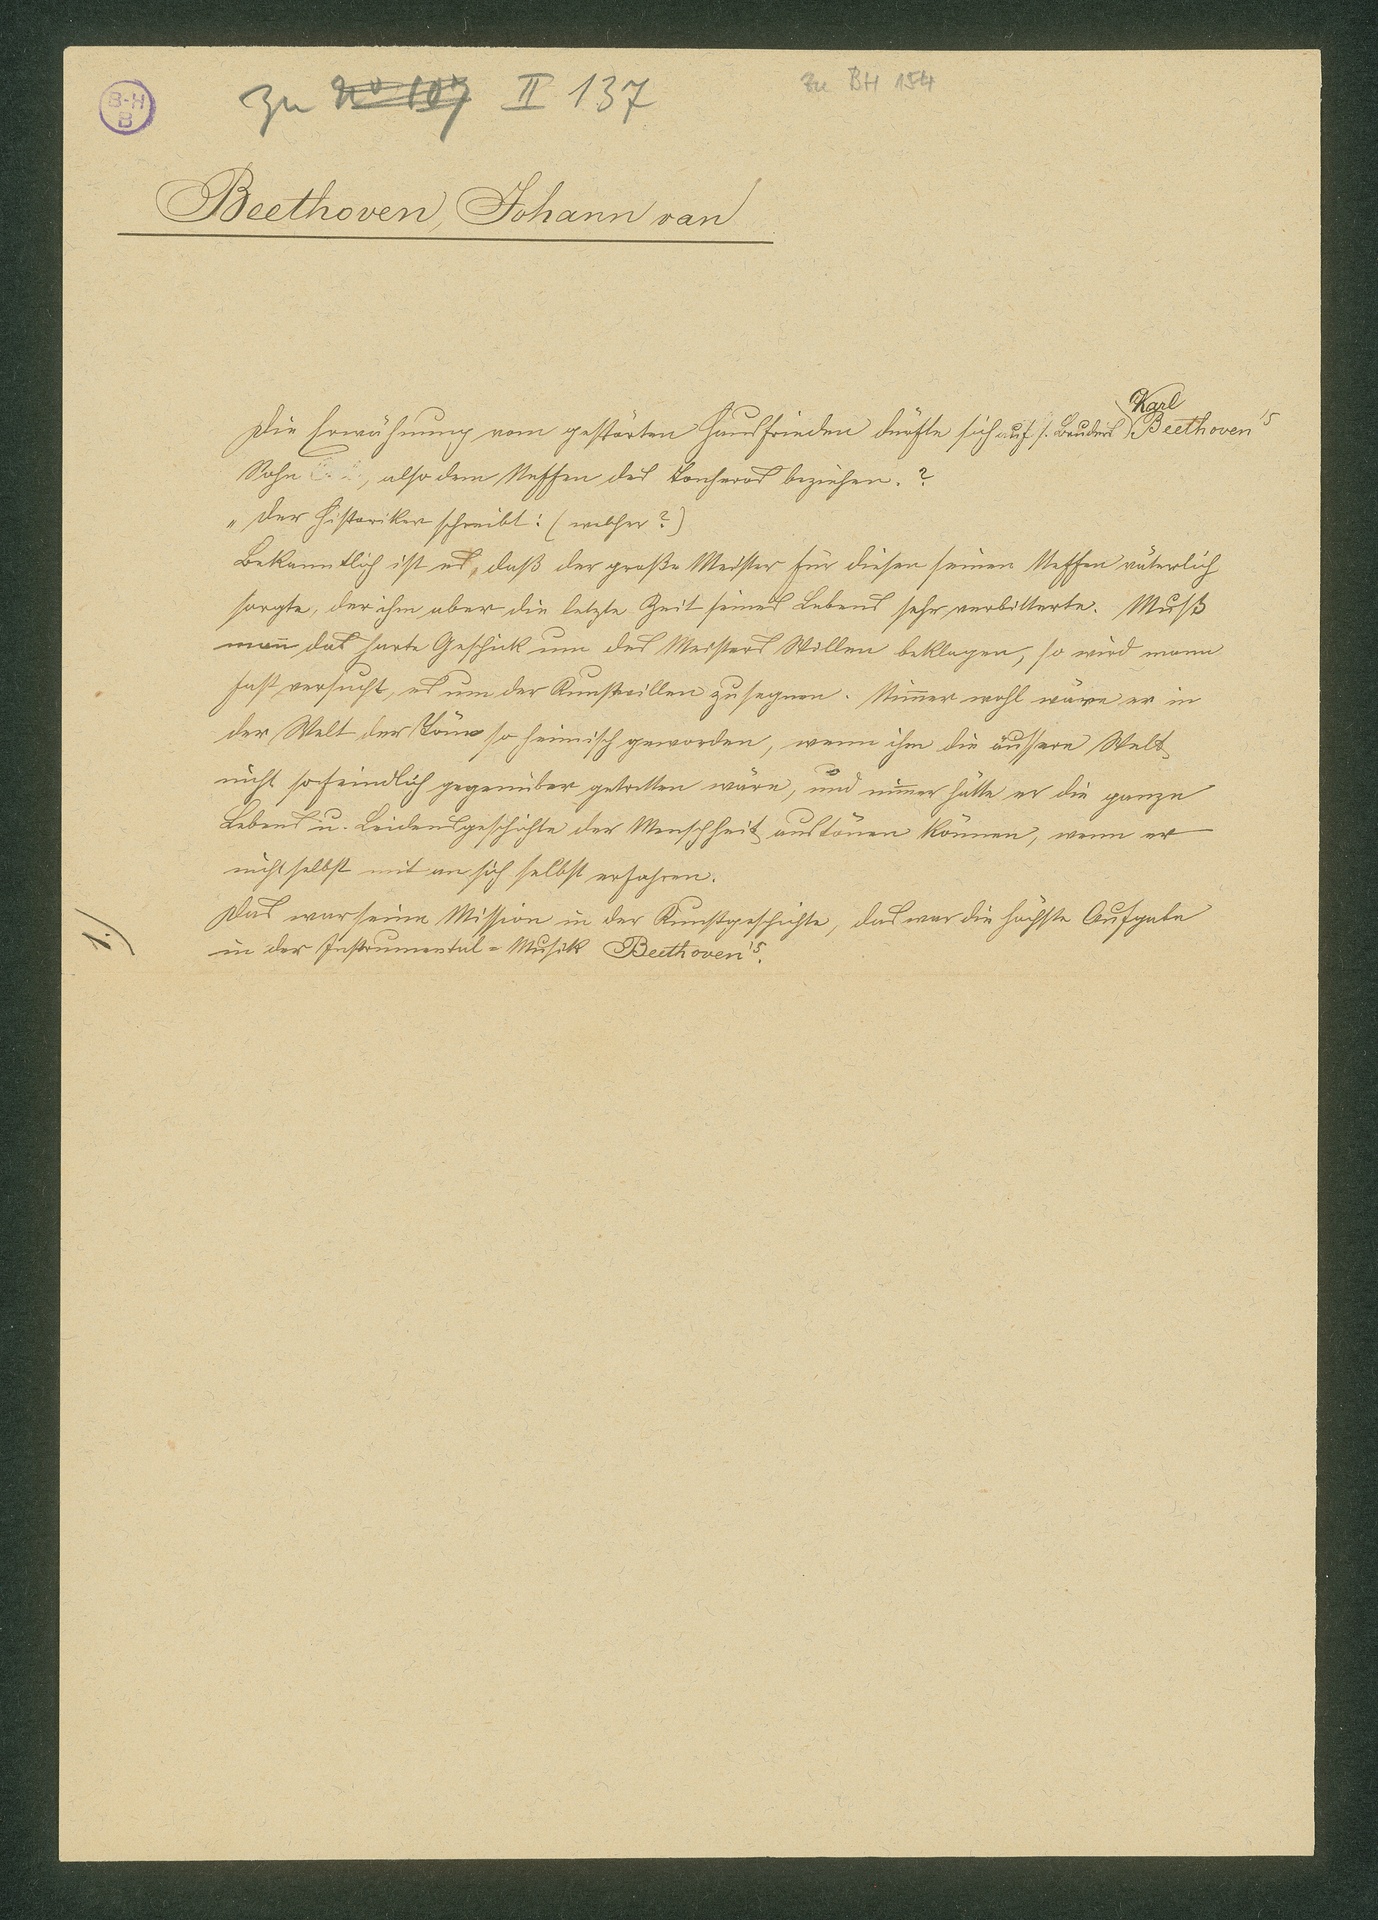 B-H
B
zu No 107 II 137
zu BH 154
Beethoven, Johann van
Karl
Die Erwähnung vom gestörten Hausfrieden dürfte sich auf s. Bruders Beethoven's
Sohn, also dem Neffen des Tonheros beziehen. ?
„ Der Historiker schreibt: (welcher?)
Bekanntlich ist es, daß der große Meister für diesen seinen Neffen väterlich
sorgte, der ihm aber die letzte Zeit seines Lebens sehr verbitterte. Muß
man das harte Geschick um des Meisters Willen beklagen, so wird mann
fast versucht, es um der Kunstwillen zu segnen. Nimer wohl wäre er in
der Welt der Töne so heimisch geworden, wenn ihm die äussere Welt
nicht so feindlich gegenüber getretten wäre, und nimer hätte er die ganze
Lebens u. Leidensgeschichte der Menschheit austönen können, wenn er
nicht selbst mit an sich selbst erfahren.
Das war seine Mission in der Kunstgeschichte, das war die höchste Aufgabe
1.)
in der Instrumental-Musik Beethoven's.